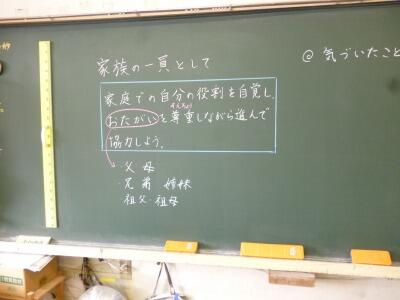 家族の一員として
家庭での自分の役割を自覚し、
おたがいを尊重しながら進んで
そんちょう
協力しよう。
・父 母
・兄弟 姉妹
祖父・祖母
@ 気づいたこと